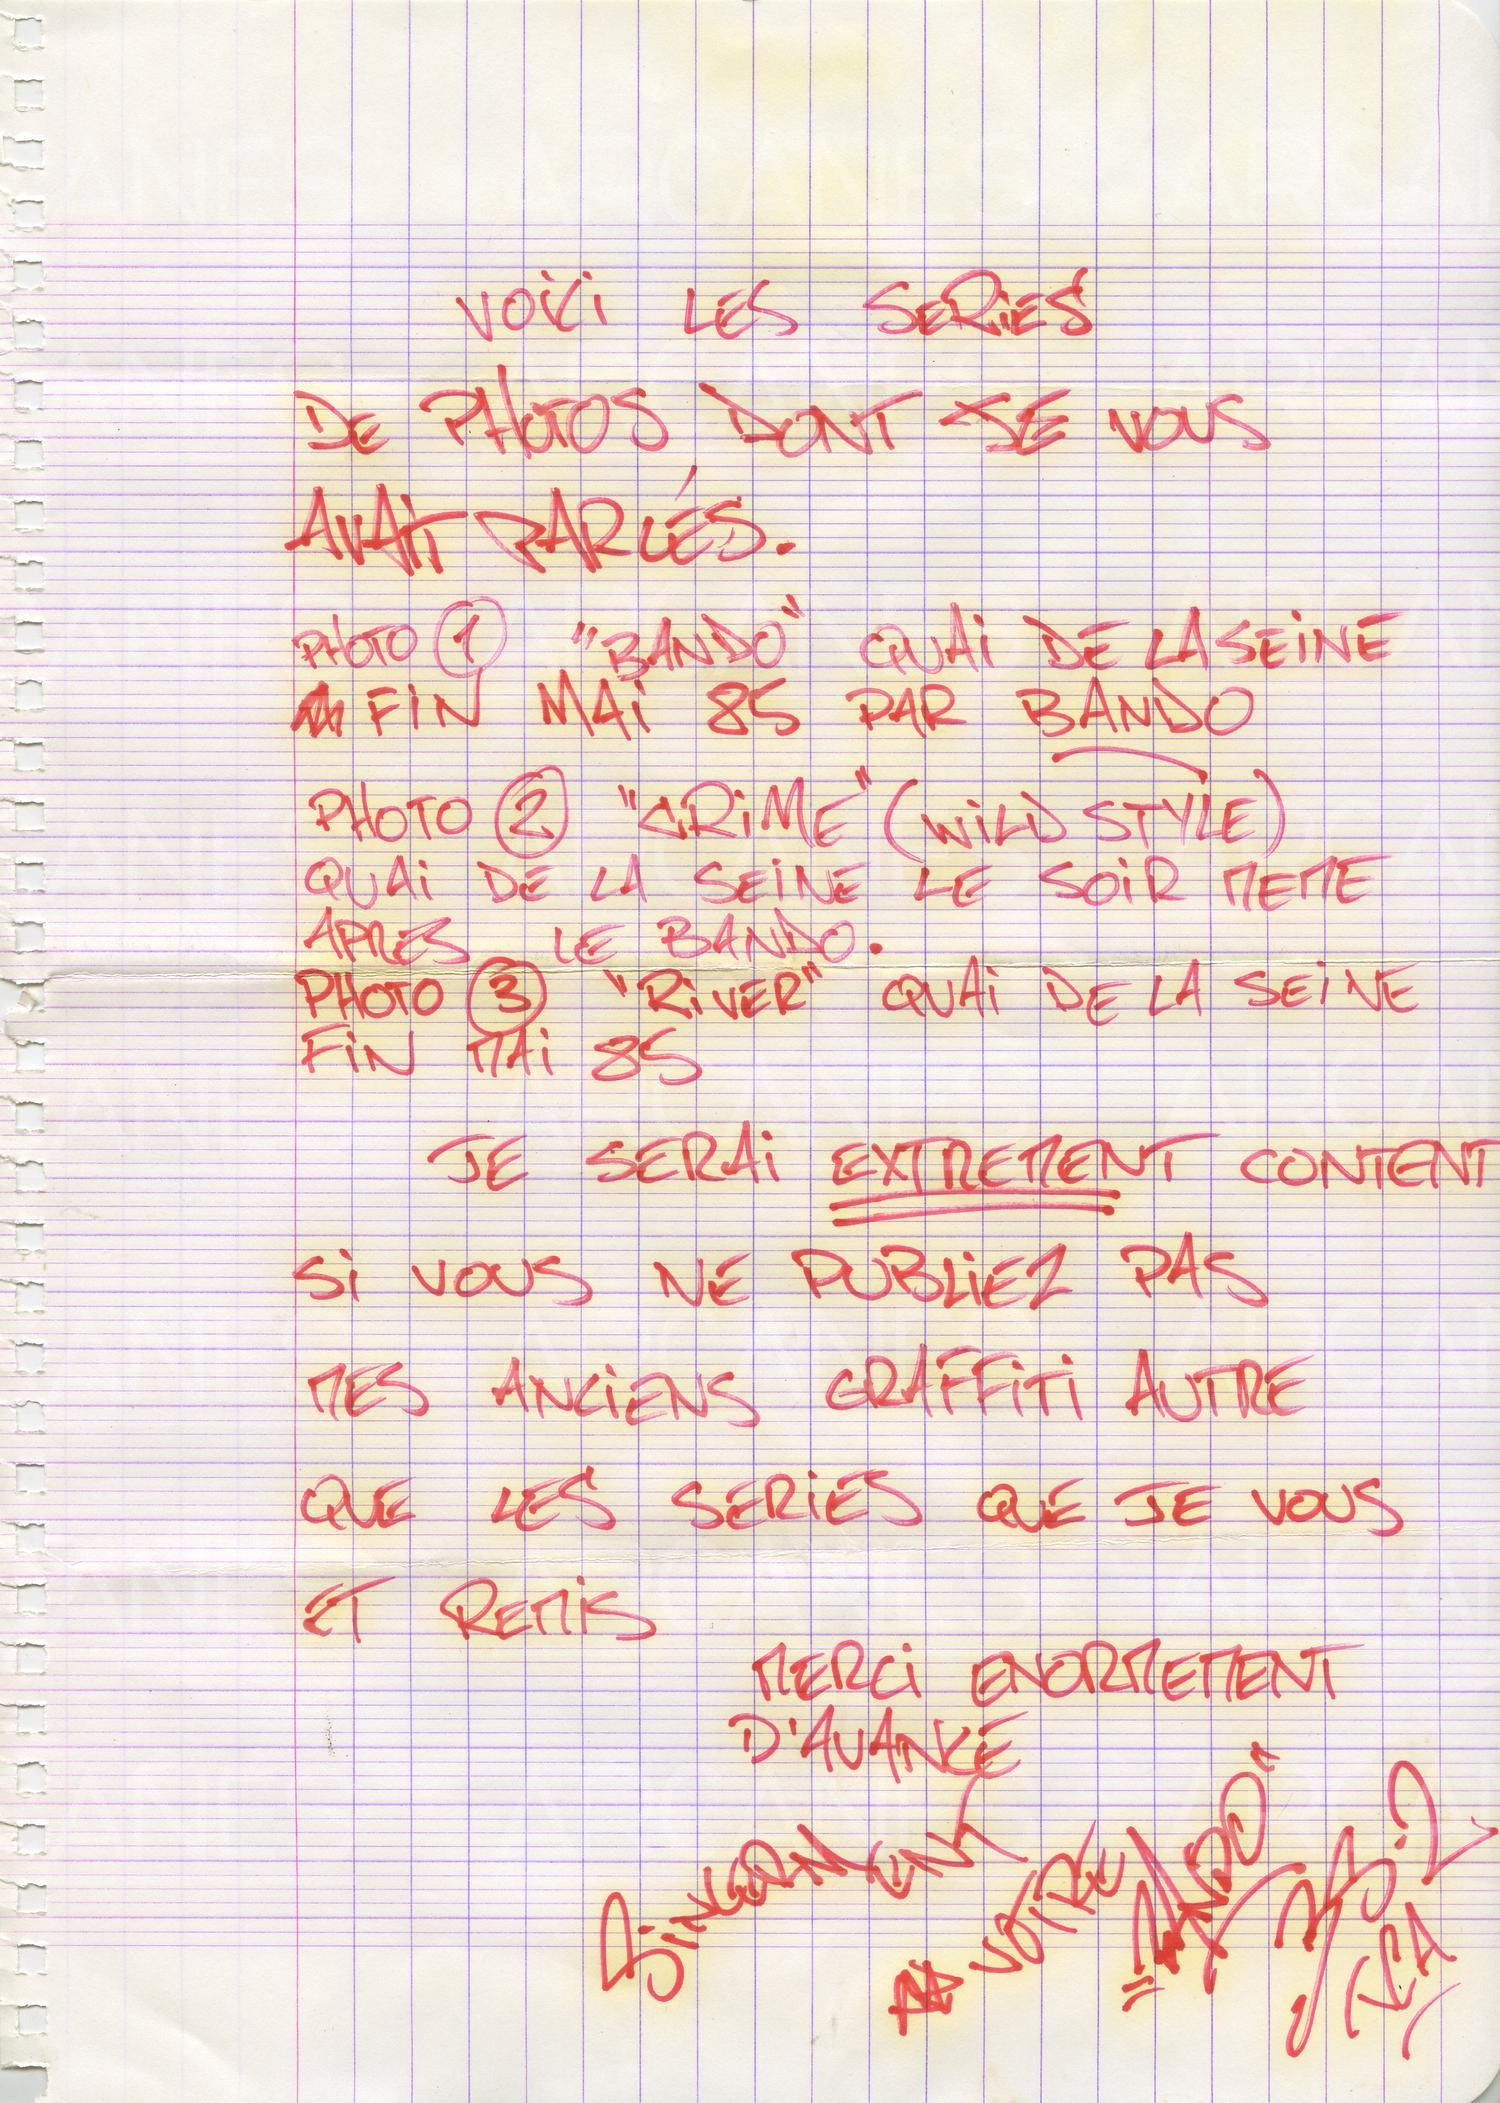 VOICI LES SERIES
DE PHOTOS DONT JE VOUS
AVAIT PARLÉS.
PHOTO 1 "BANDO" QUAI DE LA SEINE
FIN MAI 85 PAR BANDO
PHOTO 2 "CRIME" (WILD STYLE)
QUAI DE LA SEINE LE SOIR MEME
APRES LE BANDO.
PHOTO 3 "RIVER" QUAI DE LA SEINE
FIN MAI 85
JE SERAI EXTREMENT CONTENT
SI VOUS NE PUBLIEZ PAS
MES ANCIENS GRAFFITI AUTRE
QUE LES SERIES QUE JE VOUS
ET REMIS
MERCI ENORMEMENT
D'AVANCE
SINCERMENT
VOTRE "BANDO"